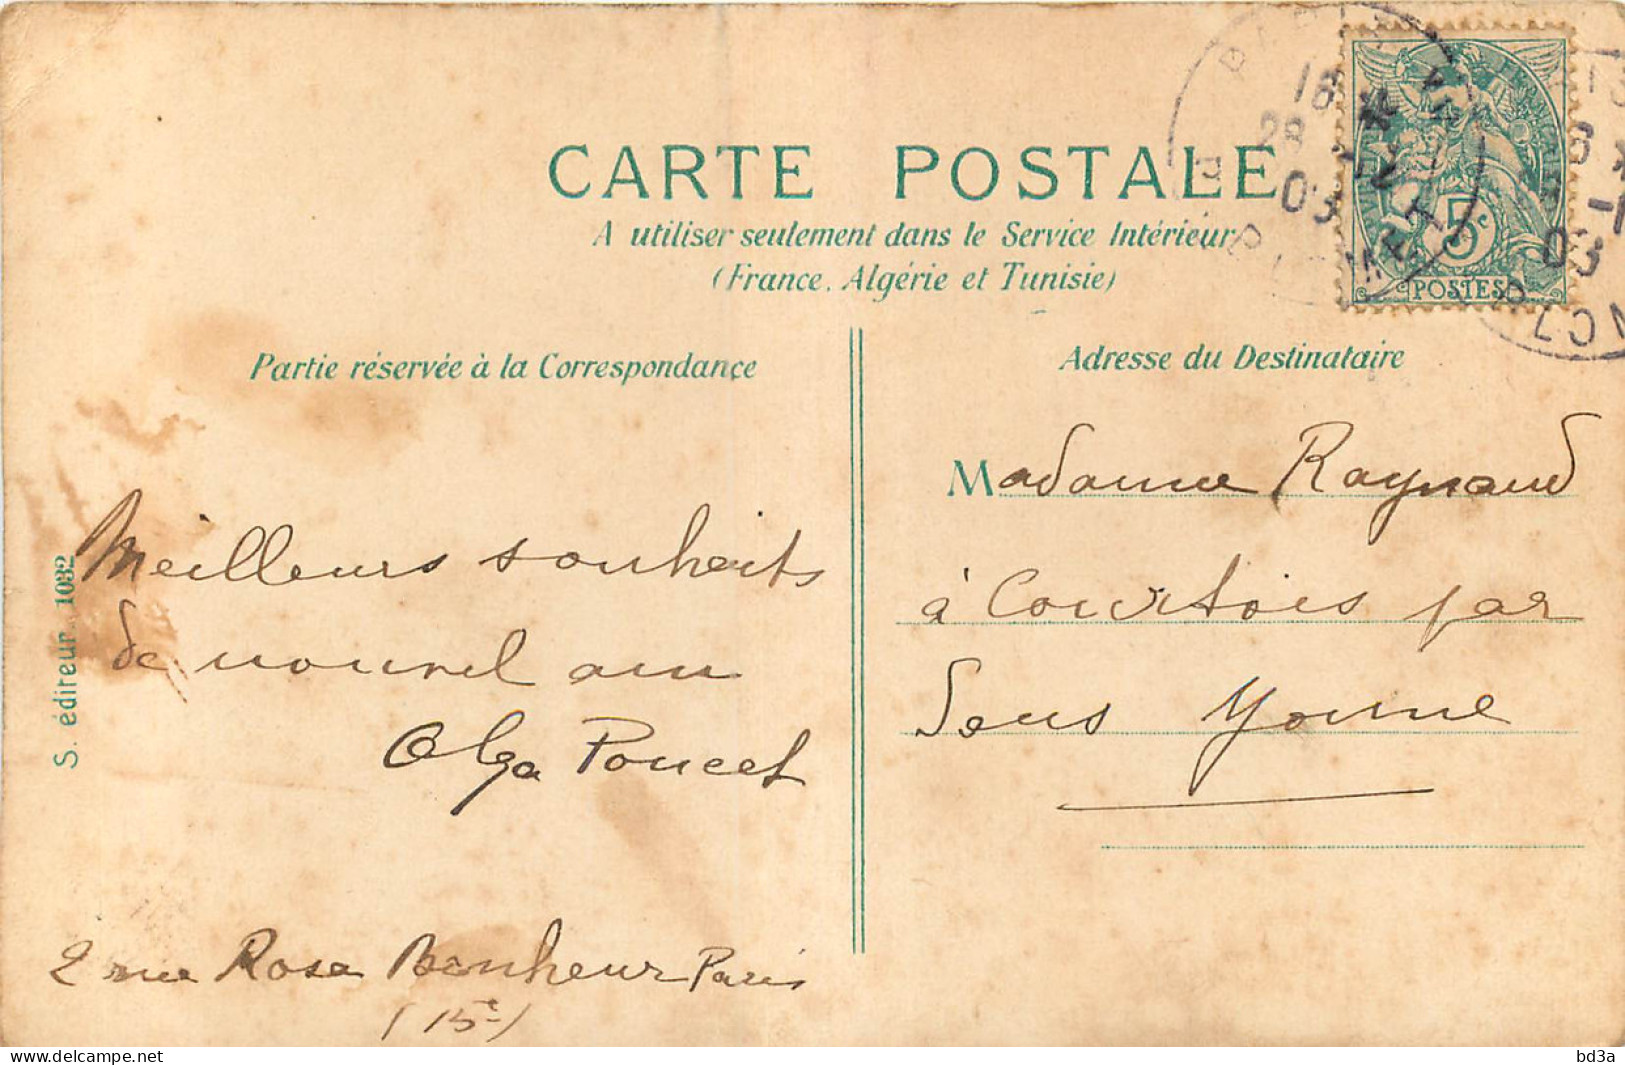 CARTE POSTALE
A utiliser seulement dans le Service Intérieur
(France, Algérie et Tunisie)
Partie réservée à la Correspondance
Adresse du Destinataire
Meilleurs souhaits
de nouvel an
Olga Poucet
2 rue Rosa Bonheur Paris
(15e)
Madame Raynaud
à Courtois par
Sens Yonne
S. éditeur 1032
5c
POSTES
18
28
03
6
03
delcampe.net
bd3a